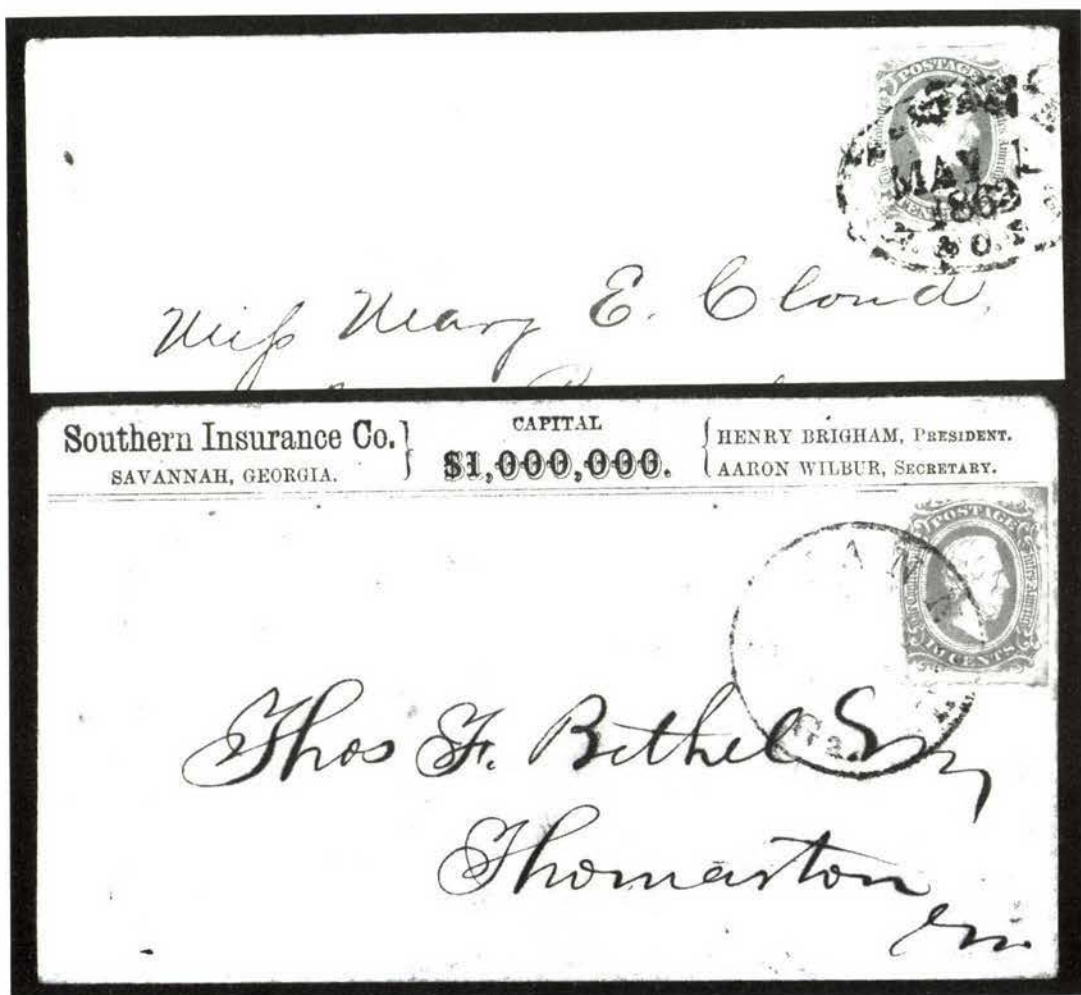 POSTAGE
MAY 1
1863
Miss Mary E. Cloud,
Southern Insurance Co.
SAVANNAH, GEORGIA.
CAPITAL
$1,000,000.
HENRY BRIGHAM, PRESIDENT.
AARON WILBUR, SECRETARY.
POSTAGE
TEN CENTS
Ga.
Thos F. Bethel Esq
Thomaston